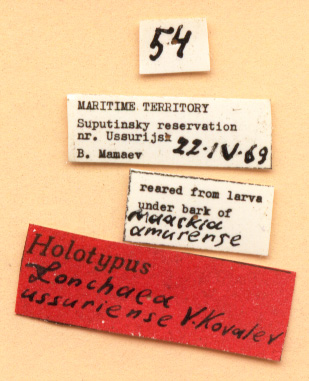 54
MARITIME TERRITORY
Suputinsky reservation
nr. Ussurijsk
B. Mamaev 22-IV-69
reared from larva
under bark of
Maackia
amurense
Holotypus
Lonchaea
ussuriense V. Kovalev